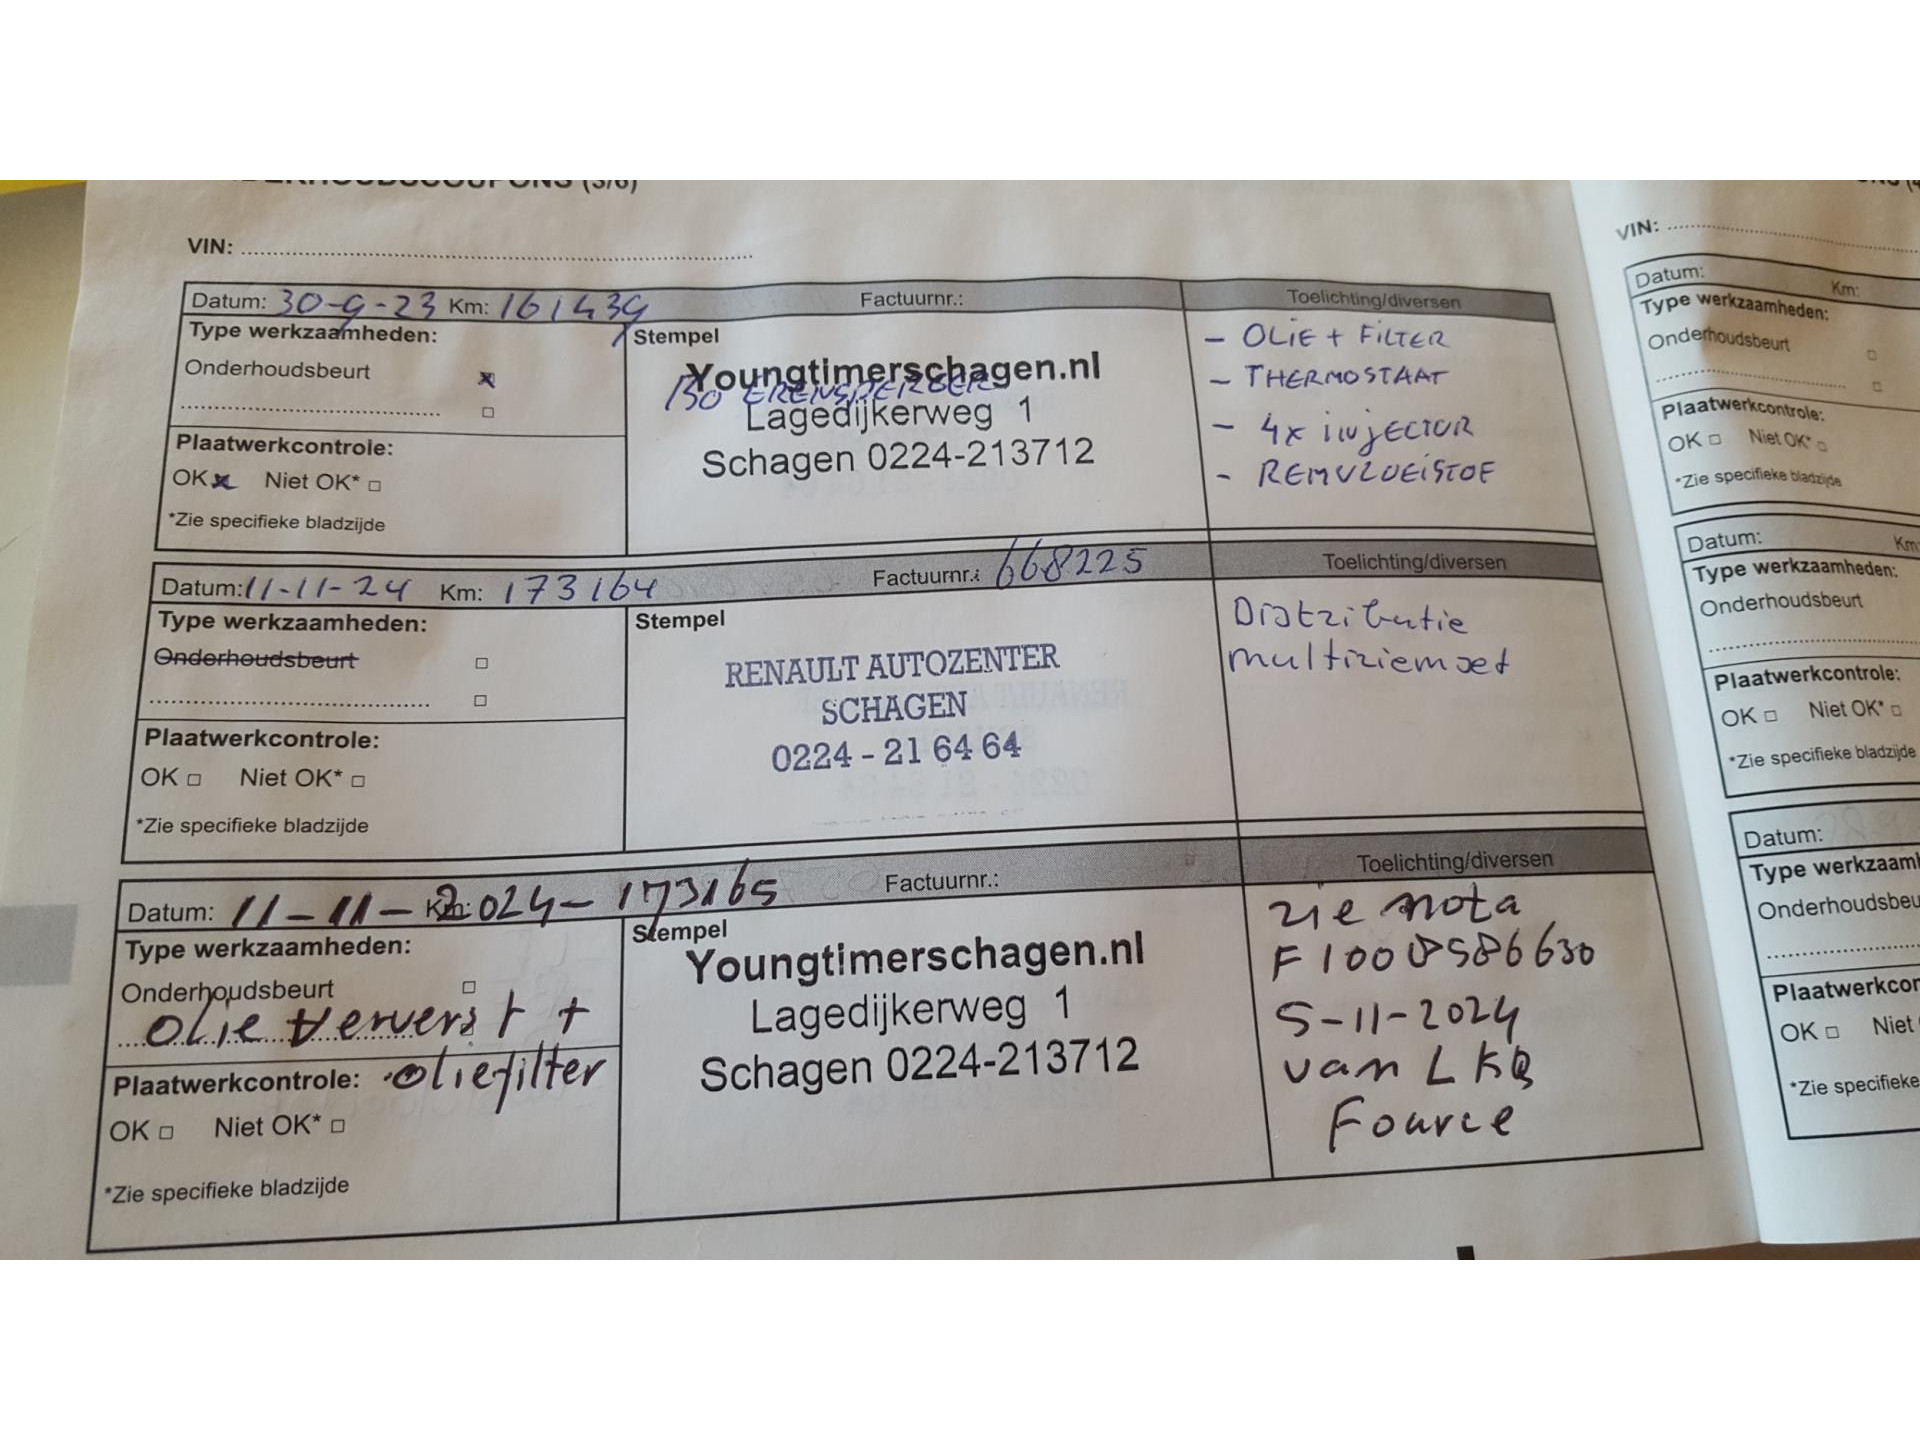 VIN:
Datum: 30-9-23 Km: 161439 Factuurnr.: Toelichting/diversen
Type werkzaamheden:
Onderhoudsbeurt
Plaatwerkcontrole:
OK Niet OK*
*Zie specifieke bladzijde
Stempel
Youngtimerschagen.nl
Lagedijkerweg 1
Schagen 0224-213712
- OLIE + FILTER
- THERMOSTAAT
- 4x INJECTOR
- REMVLOEISTOF
Datum: 11-11-24 Km: 173164 Factuurnr.: 668225 Toelichting/diversen
Type werkzaamheden:
Onderhoudsbeurt
Plaatwerkcontrole:
OK Niet OK*
*Zie specifieke bladzijde
Stempel
RENAULT AUTOZENTER
SCHAGEN
0224 - 21 64 64
Distributie
multiriem set
Datum: 11-11-2024- Km: 173165 Factuurnr.: Toelichting/diversen
Type werkzaamheden:
Onderhoudsbeurt
olie ververst +
Plaatwerkcontrole: oliefilter
OK Niet OK*
*Zie specifieke bladzijde
Stempel
Youngtimerschagen.nl
Lagedijkerweg 1
Schagen 0224-213712
zie nota
F1008586630
5-11-2024
van LKQ
Fource
VIN:
Datum: Km:
Type werkzaamheden:
Onderhoudsbeurt
Plaatwerkcontrole:
OK Niet OK*
*Zie specifieke bladzijde
Datum: Km
Type werkzaamheden:
Onderhoudsbeurt
Plaatwerkcontrole:
OK Niet OK*
*Zie specifieke bladzijde
Datum:
Type werkzaamh
Onderhoudsbeu
Plaatwerkcor
OK Niet
*Zie specifieke